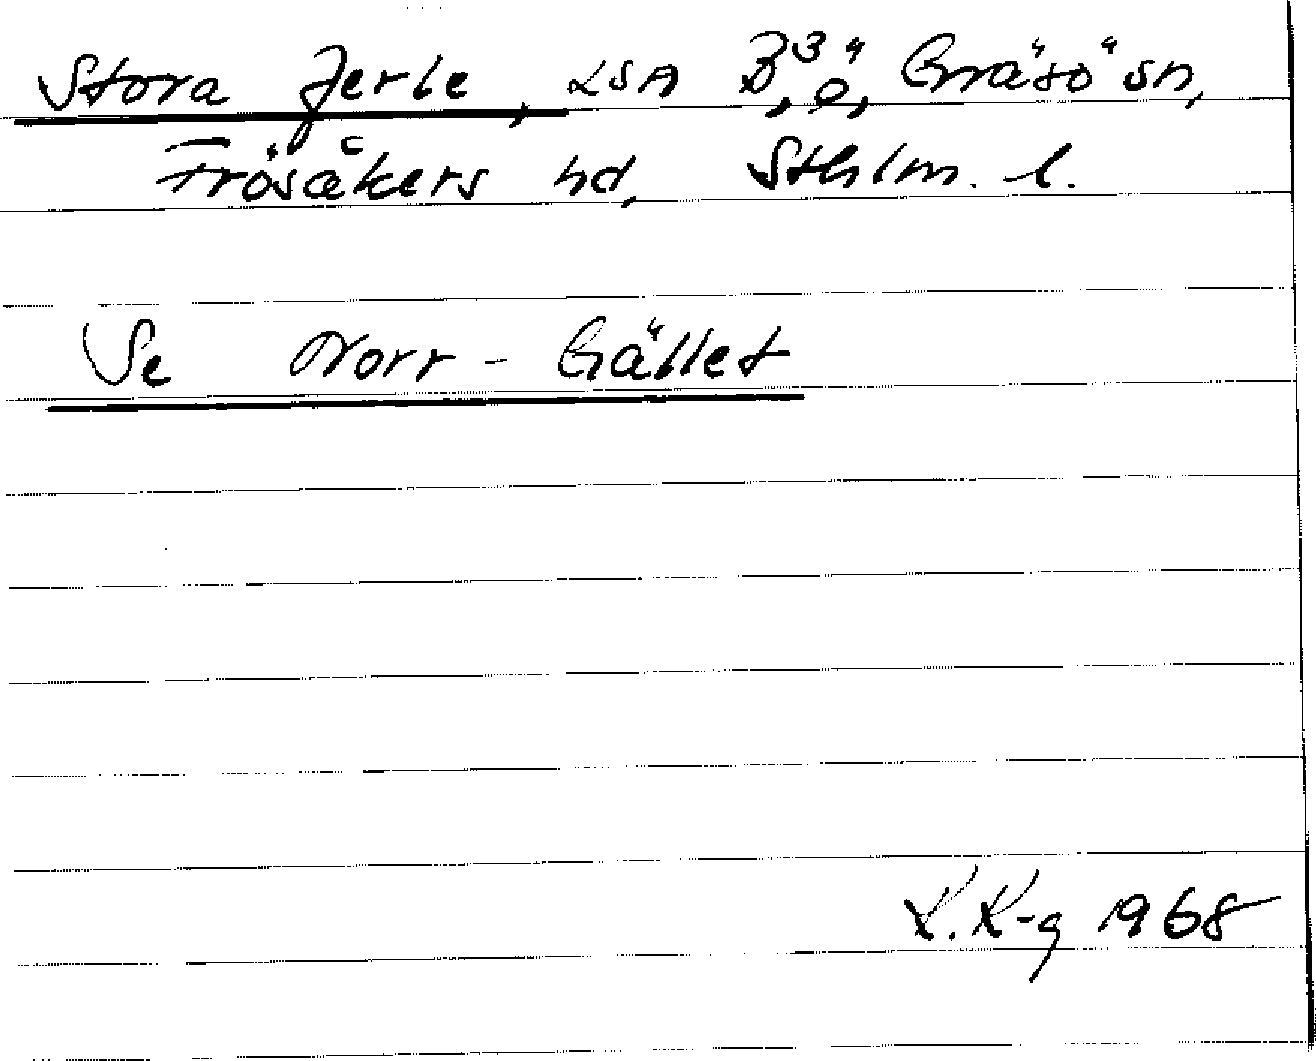 Stora Jerle, LSA B³, ö, Gräsö sn,
Frösåkers hd, Sthlm. l.
Se Norr-Gället
K. K-g 1968